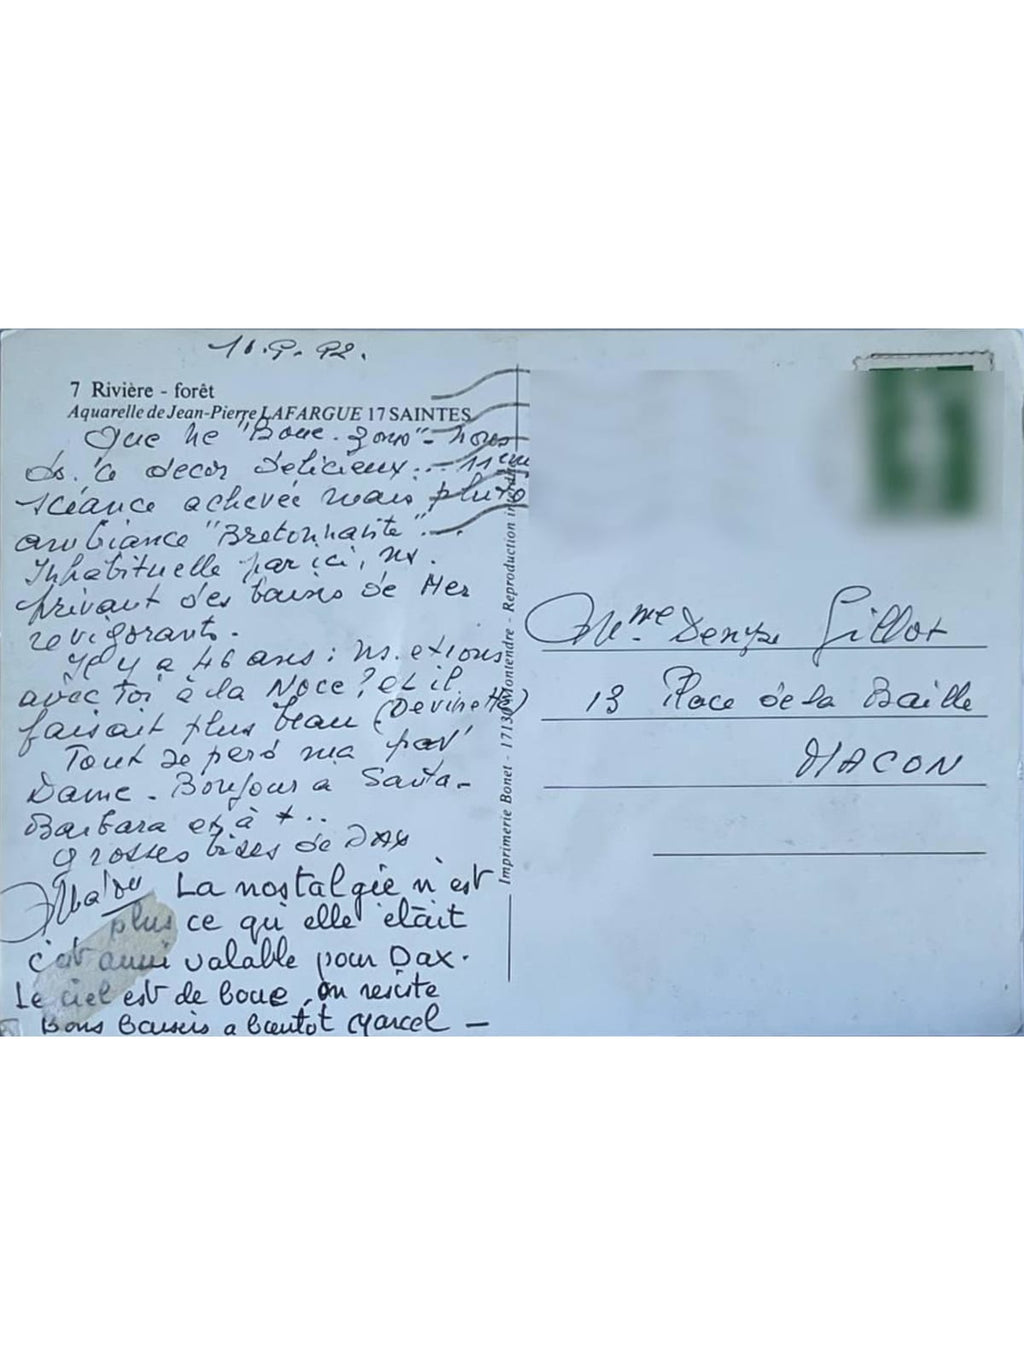 10.9.92.
7 Rivière - forêt
Aquarelle de Jean-Pierre LAFARGUE 17 SAINTES
Que ne "Boue-gons" - nous
ds. ce decor délicieux... 11em
scéance achevée mais plutô
ambiance "Bretonnante".
Inhabituelle par ici, ns.
privant des bains de Mer
revigorants.
Il y a 46 ans : ns. etions
avec toi à la Noce ? et il
faisait plus beau (Devinette)
Tout se perd ma pov'
Dame - Bonjour a Santa-
Barbara et à +..
Grosses bises de DAX
La nostalgie n'est
plus ce qu'elle était
c'est aussi valable pour Dax.
Le ciel est de boue, on resiste
Bons baisers a bientot Marcel -
Imprimerie Bonet - 17130 Montendre - Reproduction interdite
Mme Denyse Gillot
13 Place de la Baille
MACON